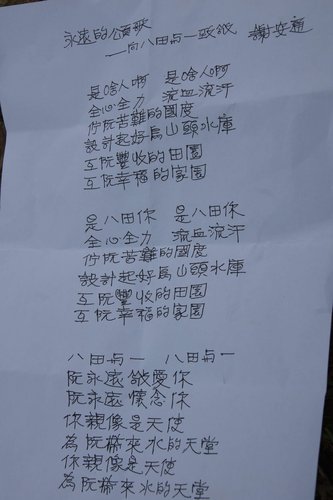 永遠的頌歌
—向八田与一致敬 謝安通
是啥人啊 是啥人啊
全心全力 流血流汗
佇阮苦難的國度
設計起好烏山頭水庫
互阮豐收的田園
互阮幸福的家園
是八田你 是八田你
全心全力 流血流汗
佇阮苦難的國度
設計起好烏山頭水庫
互阮豐收的田園
互阮幸福的家園
八田与一 八田与一
阮永遠敬愛你
阮永遠懷念你
你親像是天使
為阮帶來水的天堂
你親像是天使
為阮帶來水的天堂